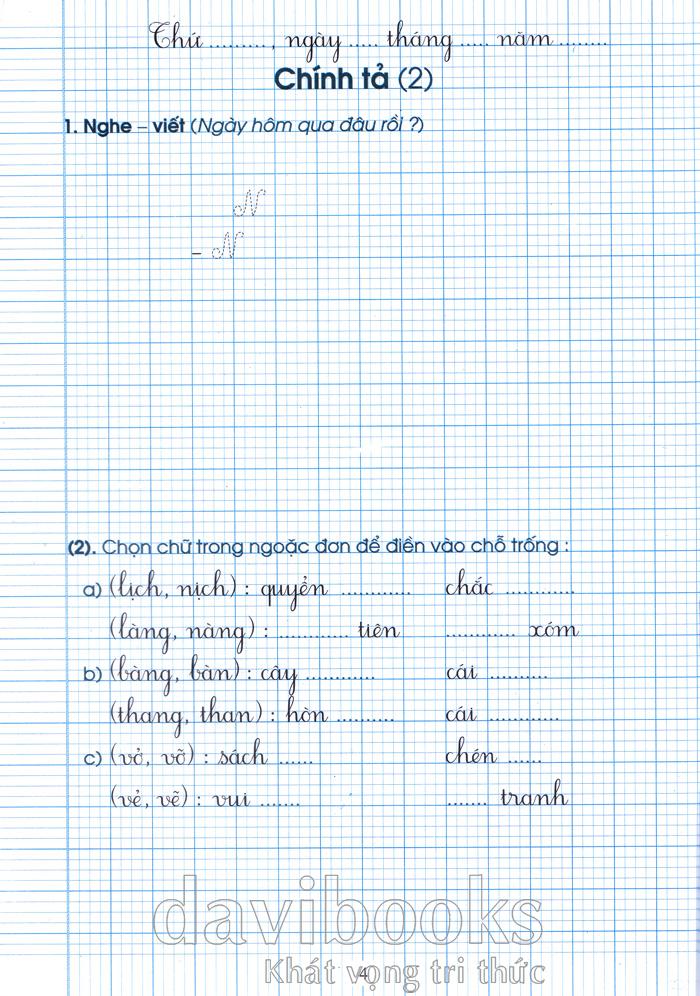 Thứ .........., ngày ..... tháng ..... năm ........
Chính tả (2)
1. Nghe – viết (Ngày hôm qua đâu rồi ?)
N
– N
(2). Chọn chữ trong ngoặc đơn để điền vào chỗ trống :
a) (lịch, nịch) : quyển ............ chắc ............
(làng, nàng) : ............ tiên ............ xóm
b) (bàng, bàn) : cây ............ cái ..........
(thang, than) : hòn .......... cái ............
c) (vỏ, võ) : sách ...... chén ......
(vẻ, vẽ) : vui ....... ....... tranh
davibooks
Khát vọng tri thức
40